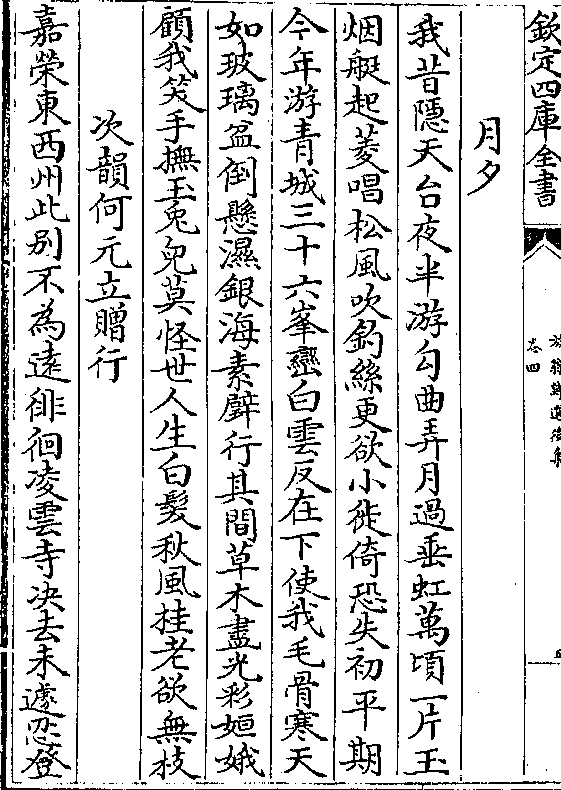 欽定四庫全書
卷四
月夕
我昔隱天台夜半游勾曲弄月過垂虹萬頃一片玉
烟艇起菱唱松風吹釣絲更欲小徙倚恐失初平期
今年游青城三十六峯巒白雲反在下使我毛骨寒天
如玻璃盆倒懸濕銀海素騑行其間草木盡光彩姮娥
顧我笑手撫玉兔兒莫怪世人生白髮秋風桂老欲無枝
次韻何元立贈行
嘉榮東西州此别不為遠徘徊凌雲寺决去未遽忍登